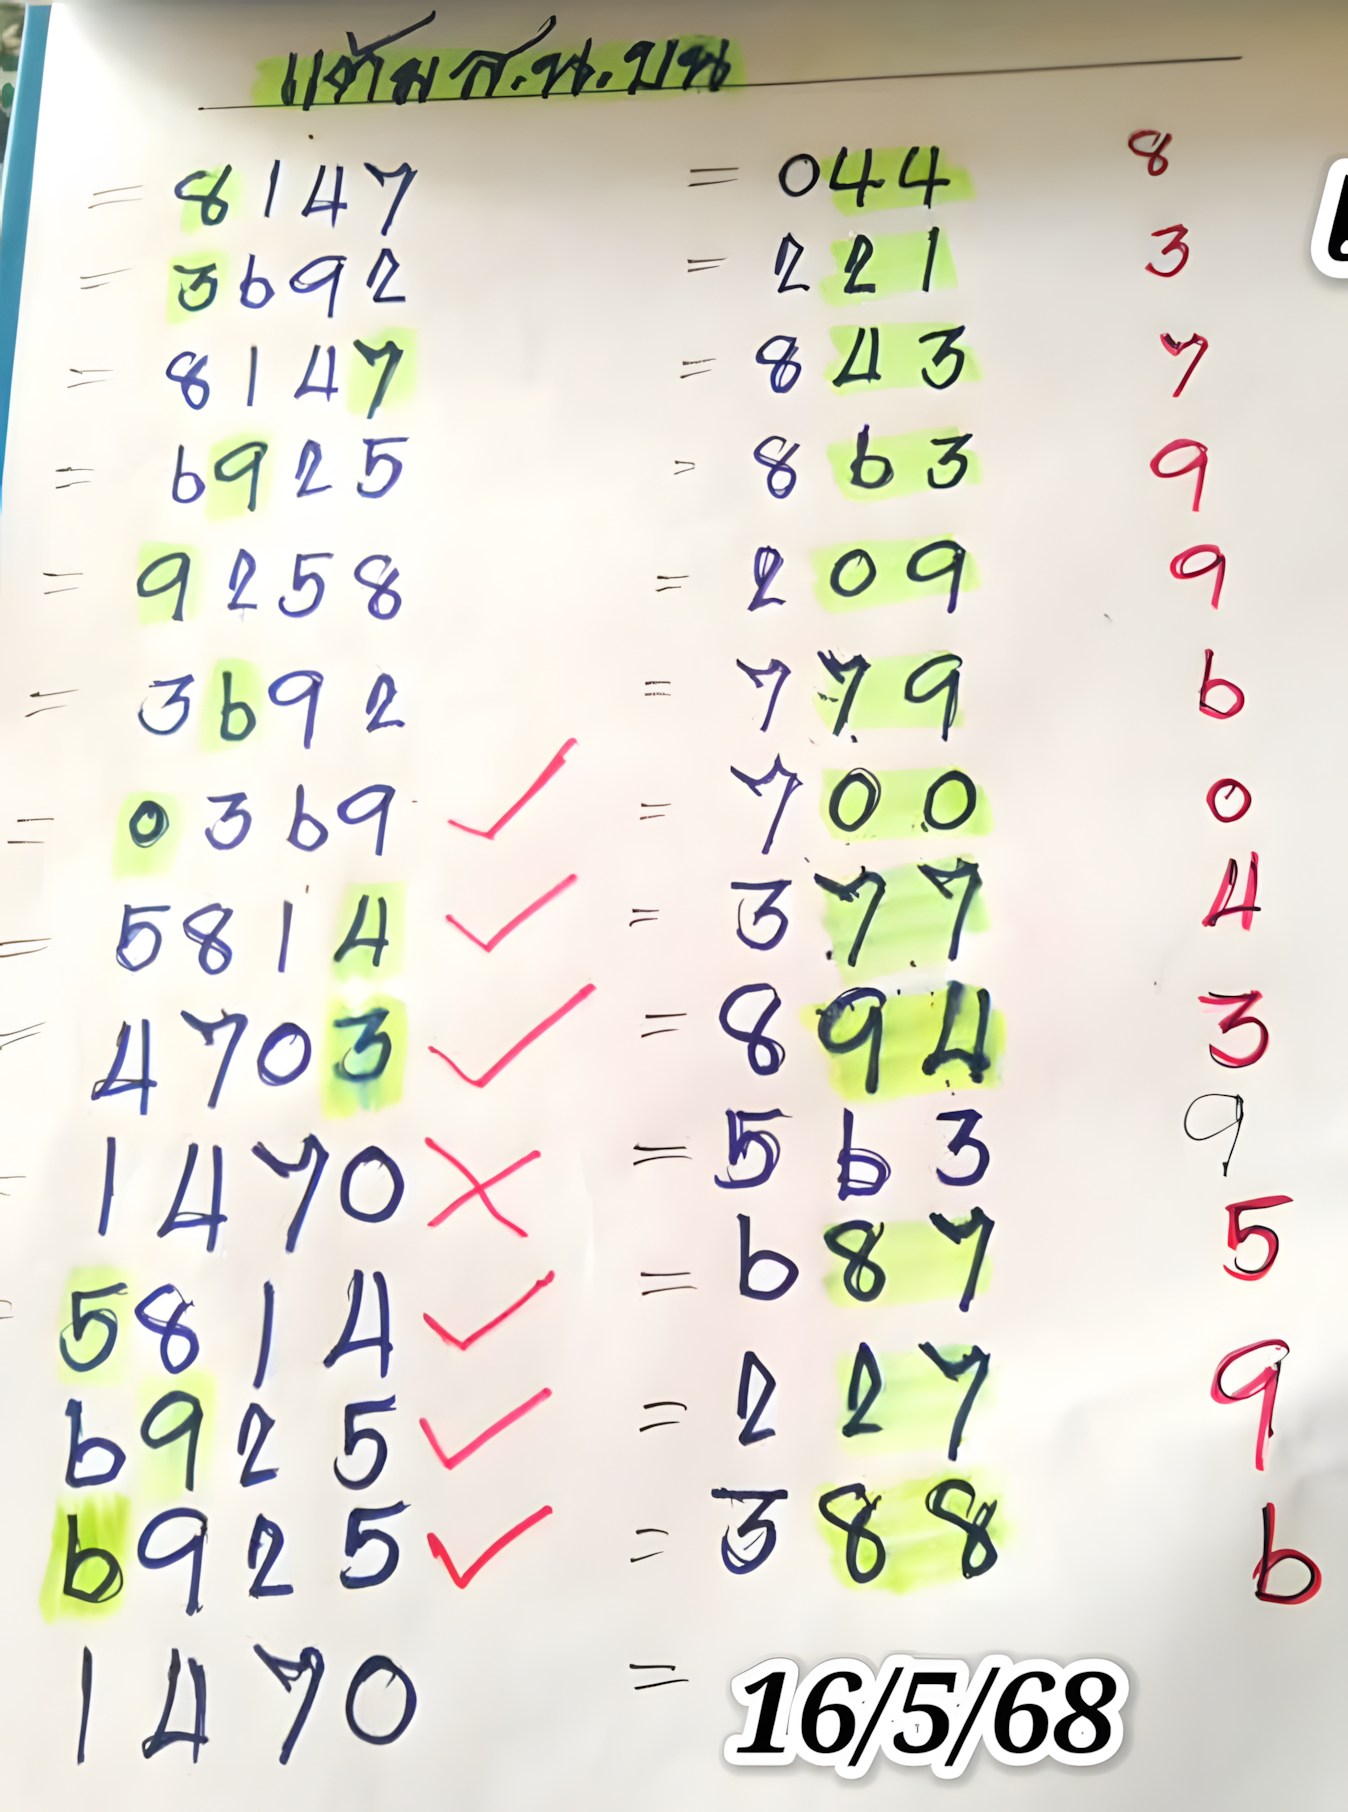 แต้ม ส.น.บน
= 8147 = 044 8
= 3692 = 221 3
= 8147 = 843 7
= 6925 = 863 9
= 9258 = 209 9
= 3692 = 779 6
= 0369 ✓ = 700 0
= 5814 ✓ = 377 4
= 4703 ✓ = 894 3
= 1470 ✗ = 563 9
= 5814 ✓ = 687 5
6925 ✓ = 227 9
6925 ✓ = 388 6
1470 = 16/5/68